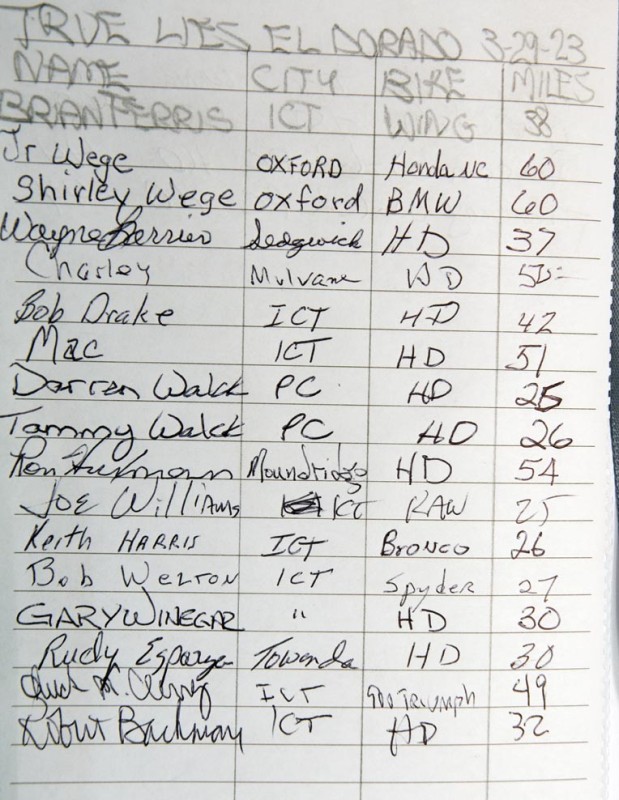 TRUE LIES EL DORADO 3-29-23
NAME CITY BIKE MILES
BRIAN FERRIS ICT WING 38
Jr Wege OXFORD Honda NC 60
Shirley Wege Oxford BMW 60
Wayne Sedgwick HD 37
Charley Mulvane
Bob Drake ICT HD 42
Mac ICT HD 51
Darren Walck PC HD 25
Tammy Walck PC HD 26
Ron Moundridge HD 54
Joe Williams ICT RAW 25
Keith HARRIS ICT BRONCO 26
Bob WELTON ICT Spyder 27
GARY WINEGAR " HD 30
Rudy Esparza Towanda HD 30
ICT 900 TRIUMPH 49
Robert Bachman ICT HD 32